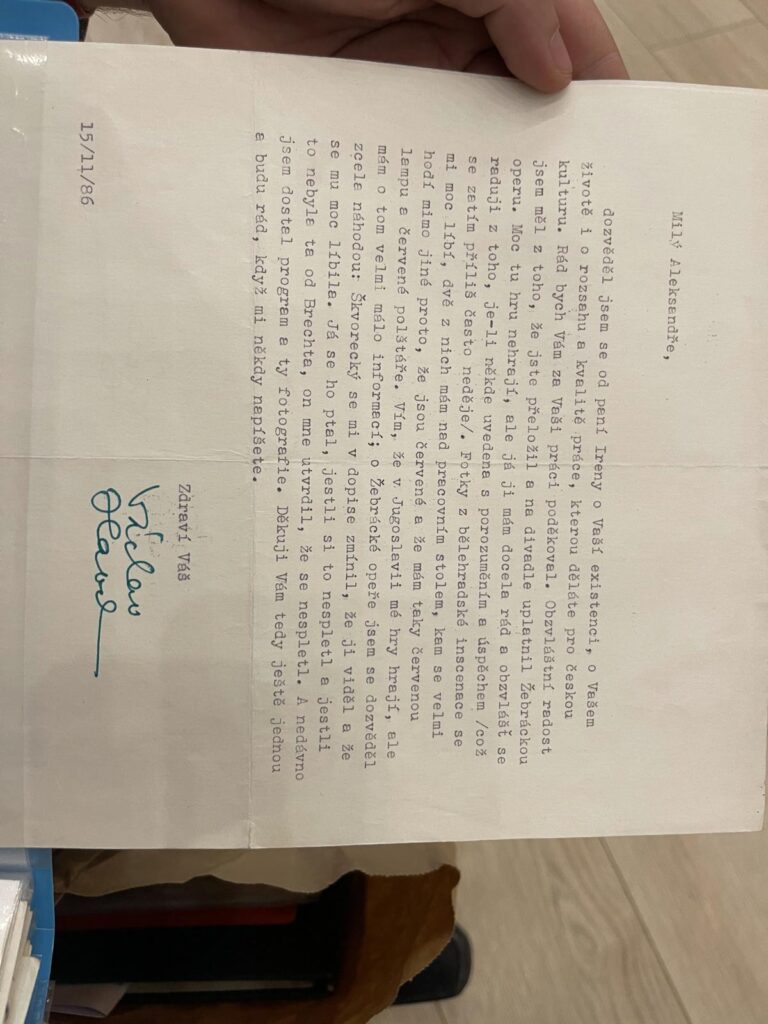 Milý Aleksandře,
dozvěděl jsem se od paní Irény o Vaší existenci, o Vašem
životě i o rozsahu a kvalitě práce, kterou děláte pro českou
kulturu. Rád bych Vám za Vaši práci poděkoval. Obzvláštní radost
jsem měl z toho, že jste přeložil a na divadle uplatnil Žebráckou
operu. Moc tu hru nehrají, ale já ji mám docela rád a obzvlášť se
raduji z toho, je-li někde uvedena s porozuměním a úspěchem /což
se zatím příliš často neděje/. Fotky z bělehradské inscenace se
mi moc líbí, dvě z nich mám nad pracovním stolem, kam se velmi
hodí mimo jiné proto, že jsou červené a že mám taky červenou
lampu a červené polštáře. Vím, že v Jugoslavii mé hry hrají, ale
mám o tom velmi málo informací; o Žebrácké opeře jsem se dozvěděl
zcela náhodou: Škvorecký se mi v dopise zmínil, že ji viděl a že
se mu moc líbila. Já se ho ptal, jestli si to nespletl a jestli
to nebyla ta od Brechta, on mne utvrdil, že se nespletl. A nedávno
jsem dostal program a ty fotografie. Děkuji Vám tedy ještě jednou
a budu rád, když mi někdy napíšete.
Zdraví Váš
Václav
Havel
15/11/86